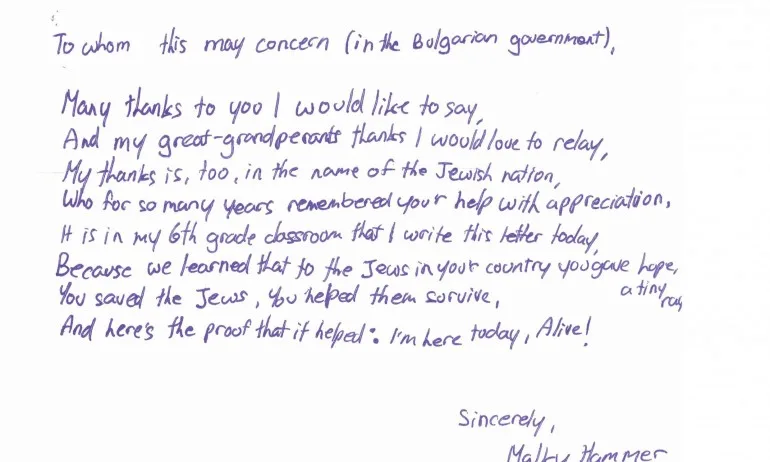 To whom this may concern (in the Bulgarian government),
Many thanks to you I would like to say,
And my great-grandperants thanks I would love to relay,
My thanks is, too, in the name of the Jewish nation,
Who for so many years remembered your help with appreciation,
It is in my 6th grade classroom that I write this letter today,
Because we learned that to the Jews in your country you gave hope,
a tiny ray
You saved the Jews, You helped them survive,
And here's the proof that it helped: I'm here today, Alive!
Sincerely,
Malky Hammer